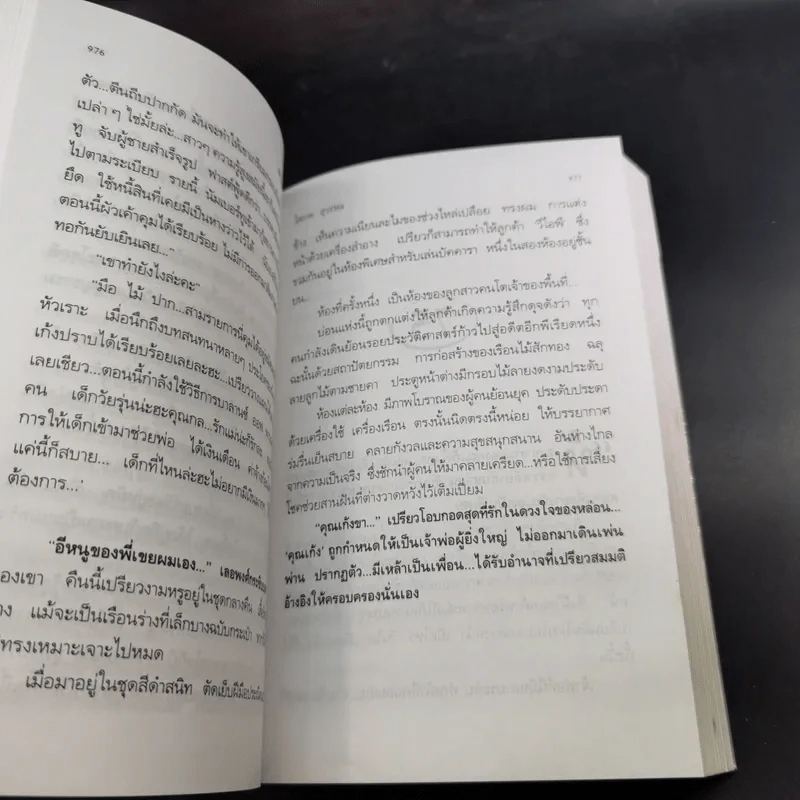 976
ตัว...ตีนถีบปากกัด มันจะทำให้เขา
เปล่า ๆ ใช่มั้ยล่ะ...สาวๆ ความรู้สูง
ทู จับผู้ชายสำเร็จรูป ฟาสต์ฟู้ดดีกว่า
ไปตามระเบียบ รายนี้ นัมเบอร์ทู
ยึด ใช้หนี้สินที่เคยมีเป็นหางว่าวไว้ได้
ตอนนี้ผัวเค้าคุมได้เรียบร้อย ไม่มีการออก
ทอกันยับเยินเลย..."
"เขาทำยังไงล่ะคะ"
"มือ ไม้ ปาก...สามรายการนี่คุมได้
หัวเราะ เมื่อนึกถึงบทสนทนาหลายๆ
เก้งปราบได้เรียบร้อยเลยละฮะ...เปรียว
เลยเชียว...ตอนนี้กำลังใช้วิธีการบาลานซ์ ออฟ
คน เด็กวัยรุ่นน่ะฮะคุณกล...รักแม่น่ะก็รักละ
การให้เด็กเข้ามาช่วยพ่อ ได้เงินเดือน
แค่นี้ก็สบาย... เด็กที่ไหนล่ะฮะไม่อยากมีเงิน
ต้องการ...'
"อีหนูของพี่เขยผมเอง..."
ของเขา คืนนี้เปรียวงามหรูอยู่ในชุดกลางคืน
แม้จะเป็นเรือนร่างที่เล็กบางฉบับกระเป๋า
ทรงเหมาะเจาะไปหมด
เมื่อมาอยู่ในชุดสีดำสนิท ตัดเย็บฝีมือ
โสภาค สุวรรณ
ช้าง เห็นความเนียนละไมของช่วงไหล่เปลือย ทรงผม การแต่ง
หน้าด้วยเครื่องสำอาง เปรียวก็สามารถทำให้ลูกค้า วีไอพี ซึ่ง
รวมกันอยู่ในห้องพิเศษสำหรับเล่นบัคคารา หนึ่งในสองห้องอยู่ชั้น
บน...
ห้องที่ครั้งหนึ่ง เป็นห้องของลูกสาวคนโตเจ้าของพื้นที่...
บ่อนแห่งนี้ถูกตกแต่งให้ลูกค้าเกิดความรู้สึกดุจดังว่า ทุก
คนกำลังเดินย้อนรอยประวัติศาสตร์ก้าวไปสู่อดีตอีกพีเรียดหนึ่ง
ฉะนั้นด้วยสถาปัตยกรรม การก่อสร้างของเรือนไม้สักทอง ฉลุ
ลายลูกไม้ตามชายคา ประตูหน้าต่างมีกรอบไม้ลายงดงามประดับ
ห้องแต่ละห้อง มีภาพโบราณของผู้คนย้อนยุค ประดับประดา
ด้วยเครื่องใช้ เครื่องเรือน ตรงนั้นนิดตรงนี้หน่อย ให้บรรยากาศ
ร่มรื่นเย็นสบาย คลายกังวลและความสุขสนุกสนาน อันห่างไกล
จากความเป็นจริง ซึ่งชักนำผู้คนให้มาคลายเครียด...หรือใช้การเสี่ยง
โชคช่วยสานฝันที่ต่างวาดหวังไว้เต็มเปี่ยม
"คุณเก้งขา..." เปรียวโอบกอดสุดที่รักในดวงใจของหล่อน...
'คุณเก้ง' ถูกกำหนดให้เป็นเจ้าพ่อผู้ยิ่งใหญ่ ไม่ออกมาเดินเพ่น
พ่าน ปรากฏตัว...มีเหล้าเป็นเพื่อน...ได้รับอำนาจที่เปรียวสมมติ
อ้างอิงให้ครอบครองนั่นเอง